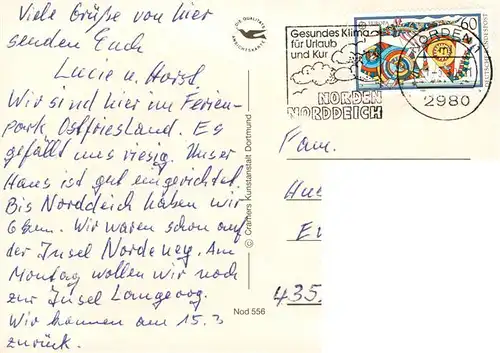 Viele Grüße von hier
senden Euch
Lucie u. Horst
Wir sind hier im Ferien-
park Ostfriesland. Es
gefällt uns riesig. Unser
Haus ist gut eingerichtet.
Bis Norddeich haben wir
6 km. Wir waren schon auf
der Insel Norderney. Am
Montag wollen wir noch
zur Insel Langeoog.
Wir kommen am 15.3
zurück.
DIE QUALITÄTS
ANSICHTSKARTE
© Cramers Kunstanstalt Dortmund
Nod 556
Gesundes Klima
für Urlaub
und Kur
NORDEN
NORDDEICH
EUROPA
60
DEUTSCHE BUNDESPOST
NORDEN 1
2980
Fam.
435.